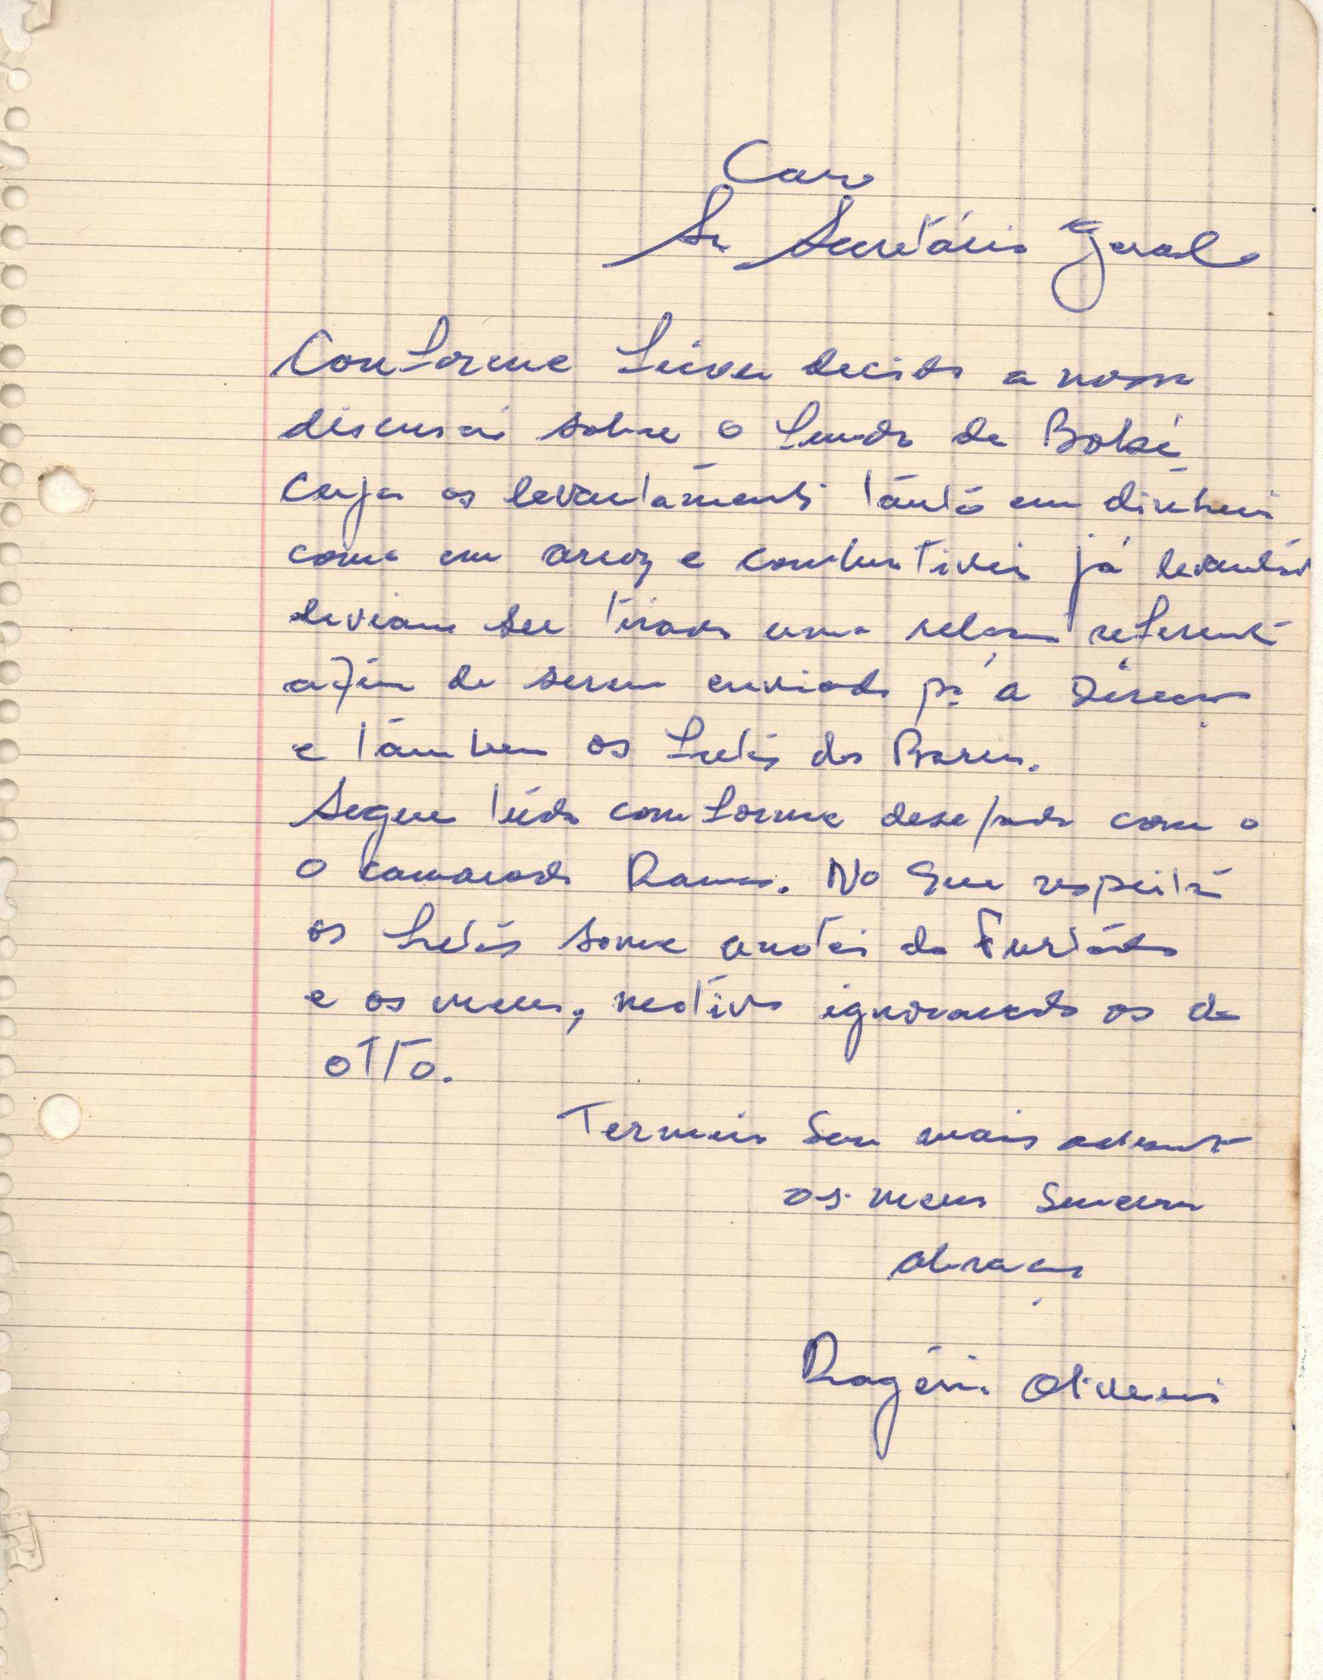 Caro
Sr. Secretário Geral
Conforme ficou decido a nossa
discussão sobre o fundo de Boké
cujos os levantamentos tánto em dinheiro
como em arroz e combustiveis já levantados
deviam ser tirado uma relação referente
afim de serem enviado pª a Direcção
e támbem os fretes dos Barcos.
Segue túdo comforme desejado com o
o camarada Ramos. No que respeita
os fretes somente anotei do Furtado
e os meus, motivo ignorando os de
Otto.
Termino sem mais adeante
os meus sinceros
abraços
Rogério Oliveira